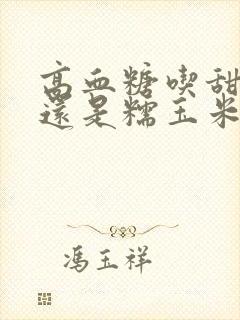 高血糖喫甜
還是糯玉米
馮玉祥